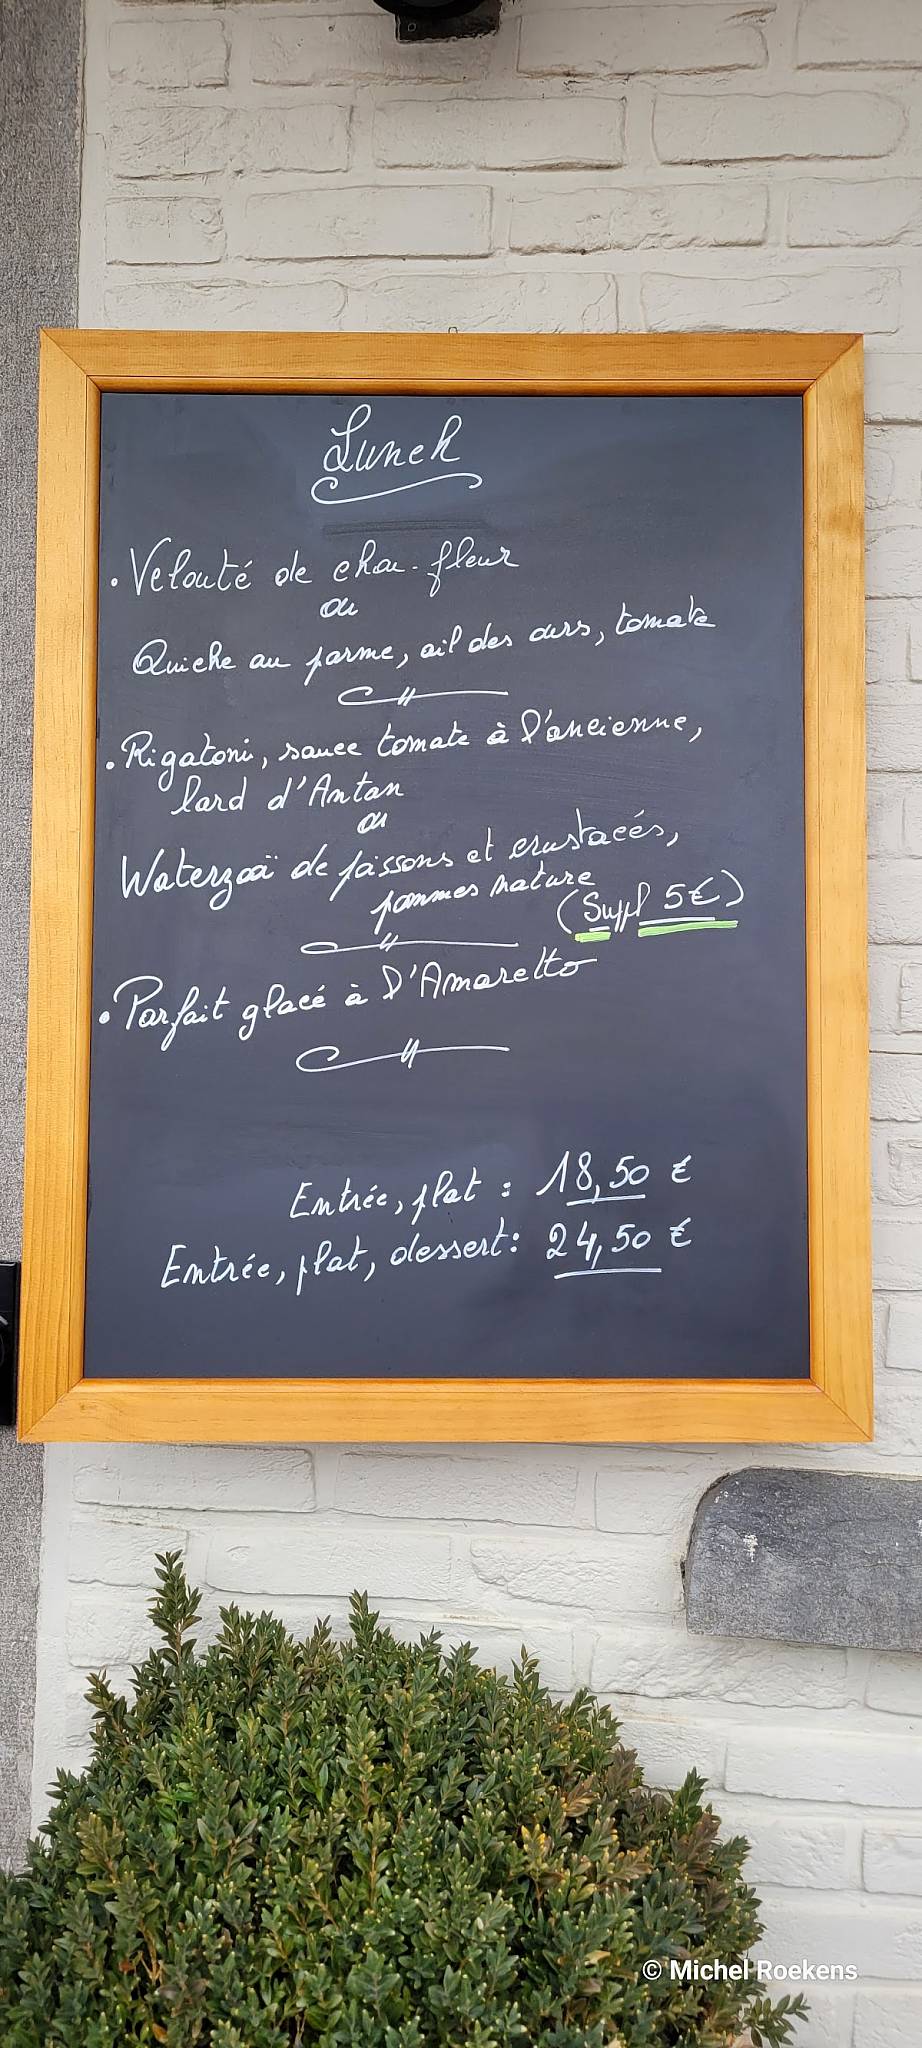 Lunch
• Velouté de chou-fleur
ou
Quiche au parme, ail des ours, tomate
• Rigatoni, sauce tomate à l'ancienne,
lard d'Antan
ou
Waterzoï de poissons et crustacés,
pommes nature
(Suppl 5€)
• Parfait glacé à l'Amaretto
Entrée, plat : 18,50 €
Entrée, plat, dessert: 24,50 €
© Michel Roekens